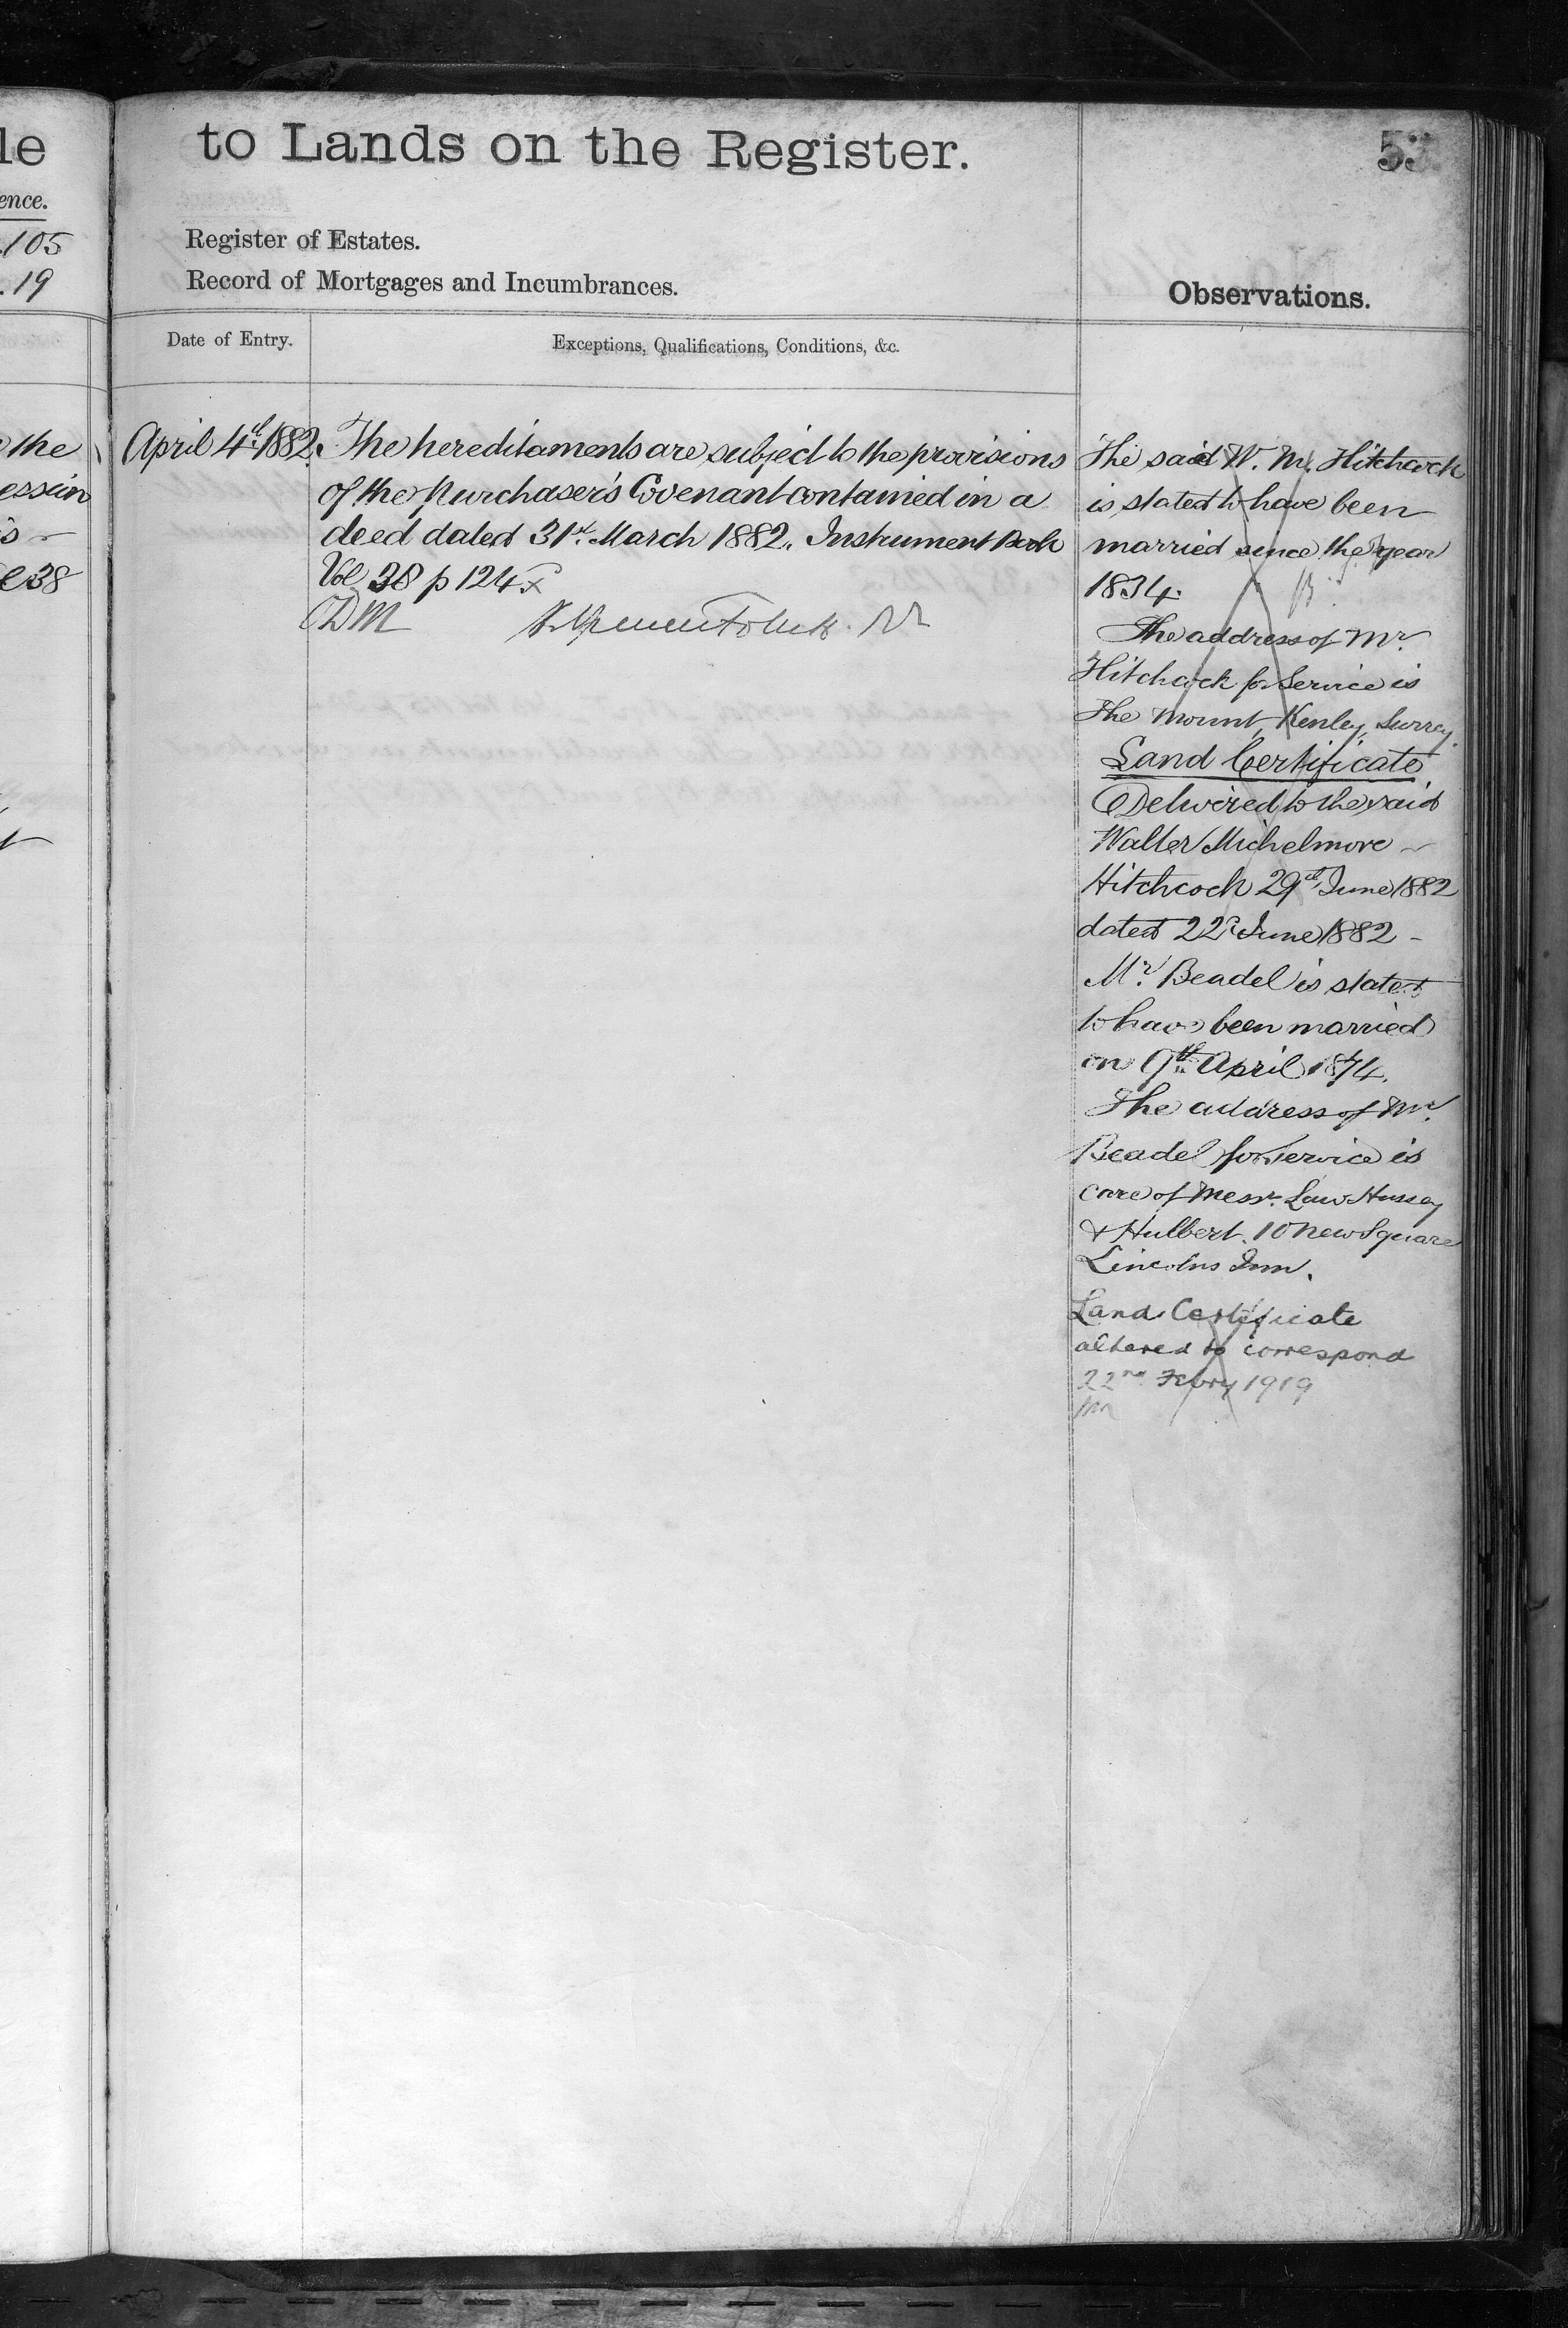 le
ence.
.105
.19
the
ession
is
38
to Lands on the Register.
53
Register of Estates.
Record of Mortgages and Incumbrances.
Observations.
Date of Entry.
Exceptions, Qualifications, Conditions, &c.
April 4th 1882.
The hereditaments are subject to the provisions
of the Purchaser's Covenant contained in a
deed dated 31st March 1882. Instrument Book
Vol 38 p 124
DM
The said W. M. Hitchcock
is stated to have been
married since the year
1834.
The address of Mr.
Hitchcock for Service is
The Mount, Kenley, Surrey.
Land Certificate
Delivered to the said
Walter Michelmore
Hitchcock 29th June 1882
dated 22d June 1882 -
Mr. Beadel is stated
to have been married
on 9th April 1874.
The address of Mr.
Beadel for service is
care of Messrs. Law Hussey
& Hulbert. 10 New Square
Lincolns Inn.
Land Certificate
altered to correspond
22nd Febry 1919